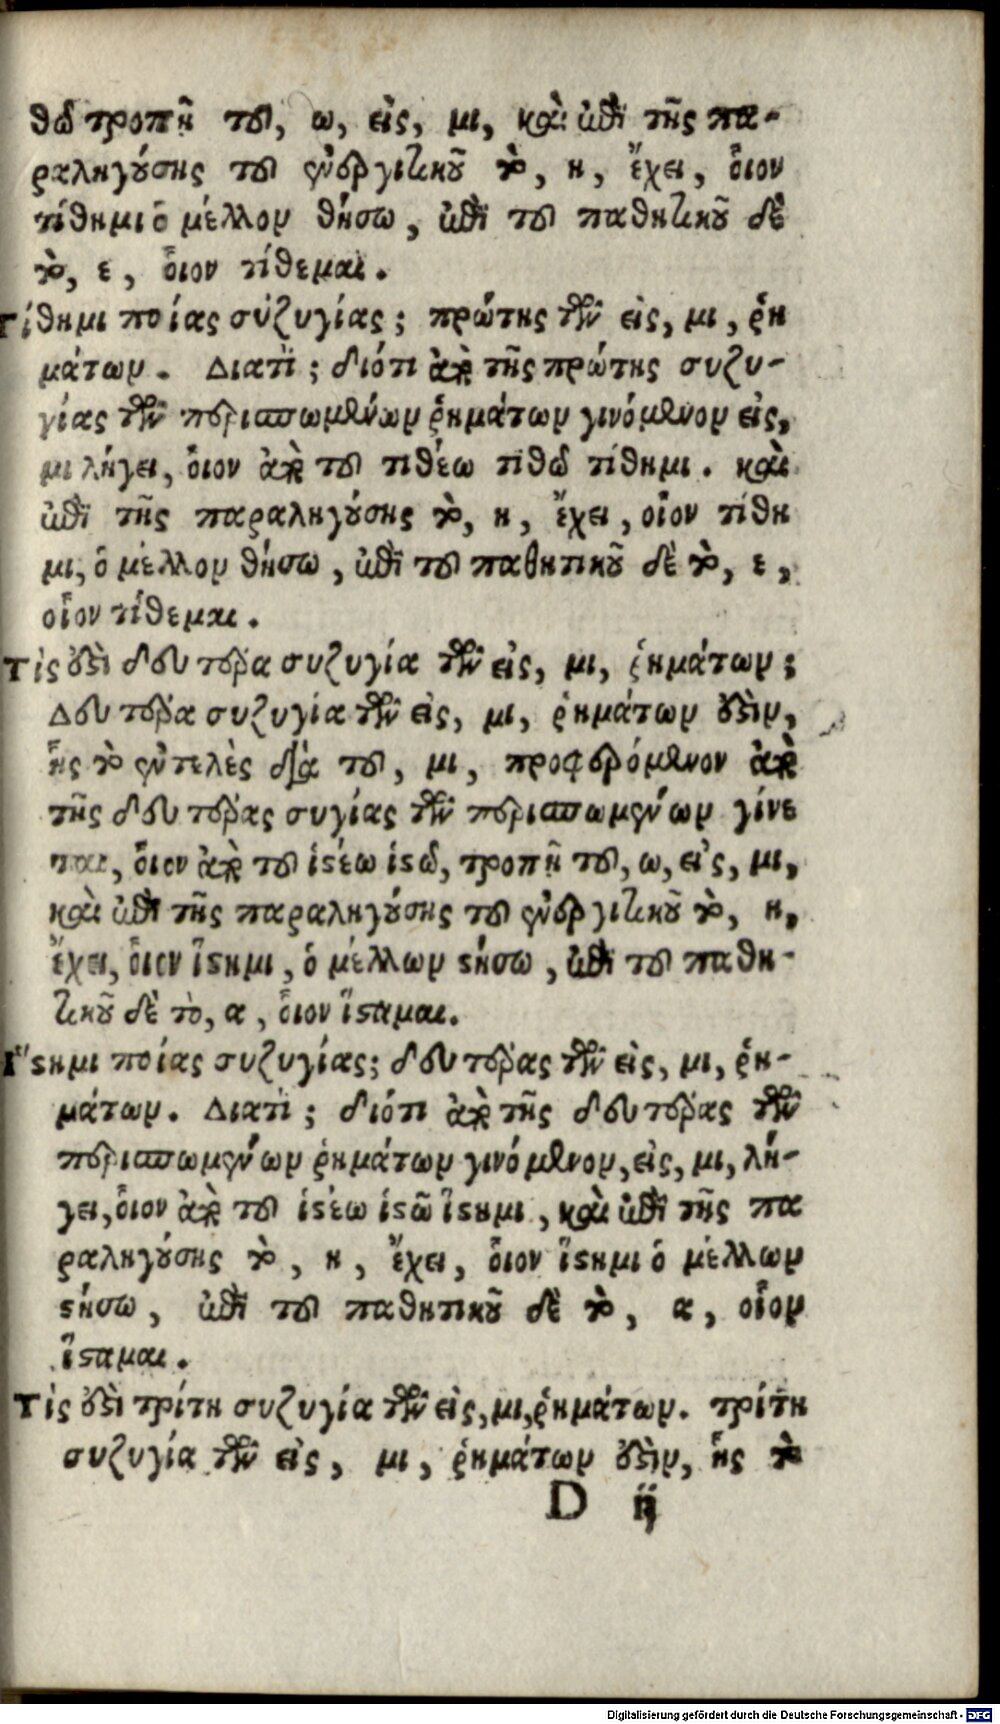 θῶ τροπῇ τοῦ, ω, εἰς, μι, καὶ ἐπὶ τῆς πα-
ραληγούσης τοῦ ἐνεργιτικοῦ τὸ, η, ἔχει, οἷον
τίθημι ὁ μέλλον θήσω, ἐπὶ τοῦ παθητικοῦ δὲ
τὸ, ε, οἷον τίθεμαι.
Τίθημι ποίας συζυγίας; πρώτης τῶν εἰς, μι, ῥη
μάτων. Διατί; διότι ἀπὸ τῆς πρώτης συζυ-
γίας τῶν περισπωμένων ῥημάτων γινόμενον εἰς,
μι λήγει, οἷον ἀπὸ τοῦ τιθέω τιθῶ τίθημι. καὶ
ἐπὶ τῆς παραληγούσης τὸ, η, ἔχει, οἷον τίθη
μι, ὁ μέλλον θήσω, ἐπὶ τοῦ παθητικοῦ δὲ τὸ, ε,
οἷον τίθεμαι.
Τίς ἐστι δευτέρα συζυγία τῶν εἰς, μι, ῥημάτων;
Δευτέρα συζυγία τῶν εἰς, μι, ῥημάτων ἐστὶν,
ἧς τὸ ἐντελὲς διὰ τοῦ, μι, προφερόμενον ἀπὸ
τῆς δευτέρας συγίας τῶν περισπωμένων γίνε
ται, οἷον ἀπὸ τοῦ ἱστέω ἱστῶ, τροπῇ τοῦ, ω, εἰς, μι,
καὶ ἐπὶ τῆς παραληγούσης τοῦ ἐνεργιτικοῦ τὸ, η,
ἔχει, οἷον ἵστημι, ὁ μέλλων στήσω, ἐπὶ τοῦ παθη-
τικοῦ δὲ τὸ, α, οἷον ἵσταμαι.
Ἵστημι ποίας συζυγίας; δευτέρας τῶν εἰς, μι, ῥη-
μάτων. Διατί; διότι ἀπὸ τῆς δευτέρας τῶν
περισπωμένων ῥημάτων γινόμενον, εἰς, μι, λή-
γει, οἷον ἀπὸ τοῦ ἱστέω ἱστῶ ἵστημι, καὶ ἐπὶ τῆς πα
ραληγούσης τὸ, η, ἔχει, οἷον ἵστημι ὁ μέλλων
στήσω, ἐπὶ τοῦ παθητικοῦ δὲ τὸ, α, οἷον
ἵσταμαι.
Τίς ἐστι τρίτη συζυγία τῶν εἰς, μι, ῥημάτων. τρίτη
συζυγία τῶν εἰς, μι, ῥημάτων ἐστὶν, ἧς τὸ
D ij
Digitalisierung gefördert durch die Deutsche Forschungsgemeinschaft - DFG